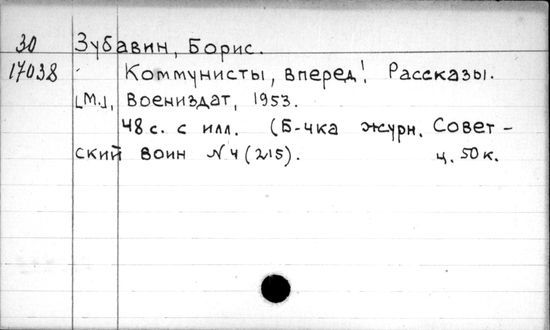 30 Зубавин, Борис.
17038 Коммунисты, вперед! Рассказы.
[М.], Воениздат, 1953.
48 с. с илл. (Б-чка журн. Совет-
ский воин № 4 (215). ц. 50 к.